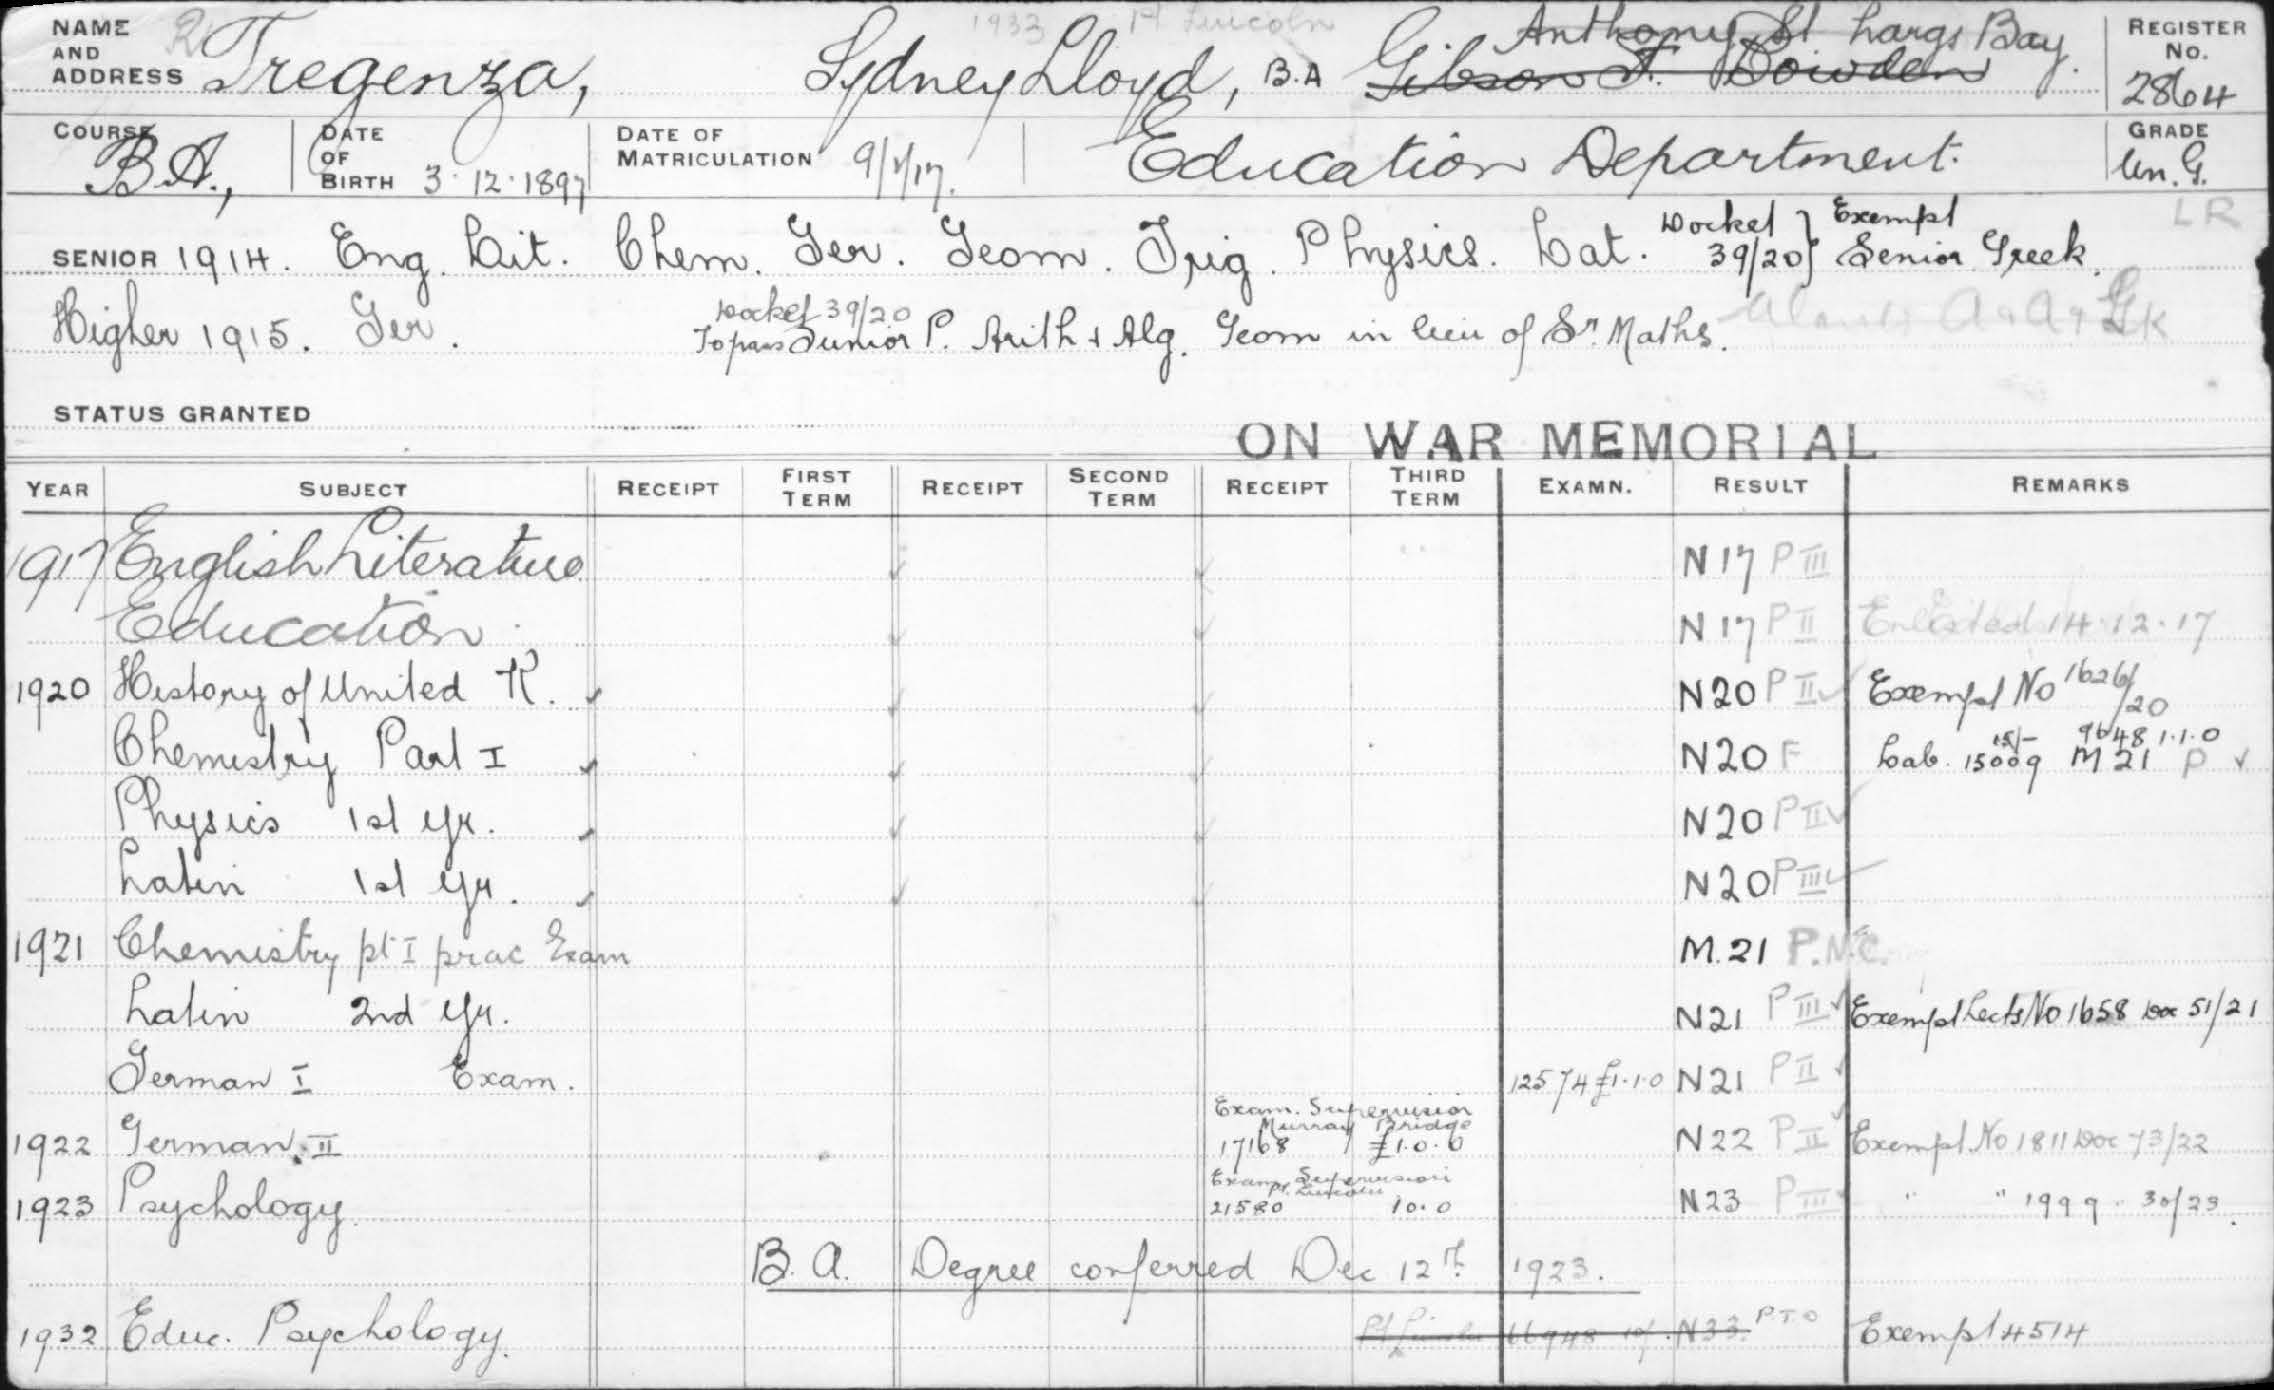 1933 Pt Lincoln
NAME AND ADDRESS Tregenza, Sydney Lloyd, B.A Gibson St. Bowden Anthony St Largs Bay.
REGISTER No. 2864
COURSE B.A., DATE OF BIRTH 3·12·1897 DATE OF MATRICULATION 9/1/17. Education Department.
GRADE Un. G.
L R
SENIOR 1914. Eng. Lit. Chem. Ger. Geom. Trig. Physics. Lat. Docket 39/20 } Exempt Senior Greek.
Higher 1915. Ger. Docket 39/20 To pass Junior P. Arith & Alg. Geom in lieu of Sr Maths.
STATUS GRANTED
ON WAR MEMORIAL
YEAR SUBJECT RECEIPT FIRST TERM RECEIPT SECOND TERM RECEIPT THIRD TERM EXAMN. RESULT REMARKS
1917 English Literature N 17 P III
Education N 17 P II Enlisted 14·12·17
1920 History of United K. N20 P II Exempt No 1626/20
Chemistry Part I N20 F Lab. 15009 15/- 9648 1·1·0 M 21 P
Physics 1st Yr. N20 P II
Latin 1st Yr. N20 P III
1921 Chemistry pt I prac Exam M.21 P.N.C.
Latin 2nd Yr. N21 P III Exempt Lects No 1658 Doc 51/21
German I Exam. 12574 £1·1·0 N21 P II
1922 German II Exam. Supervision Murray Bridge 17168 £1·0·0 N22 P II Exempt No 1811 Doc 73/22
1923 Psychology Exam Supervision Pt. Lincoln 21580 10·0 N23 P III " " 1999 30/23.
B.A. Degree conferred Dec 12th 1923.
1932 Educ. Psychology. Pt Lincoln 66948 10/- N33. PTO Exempt 4514